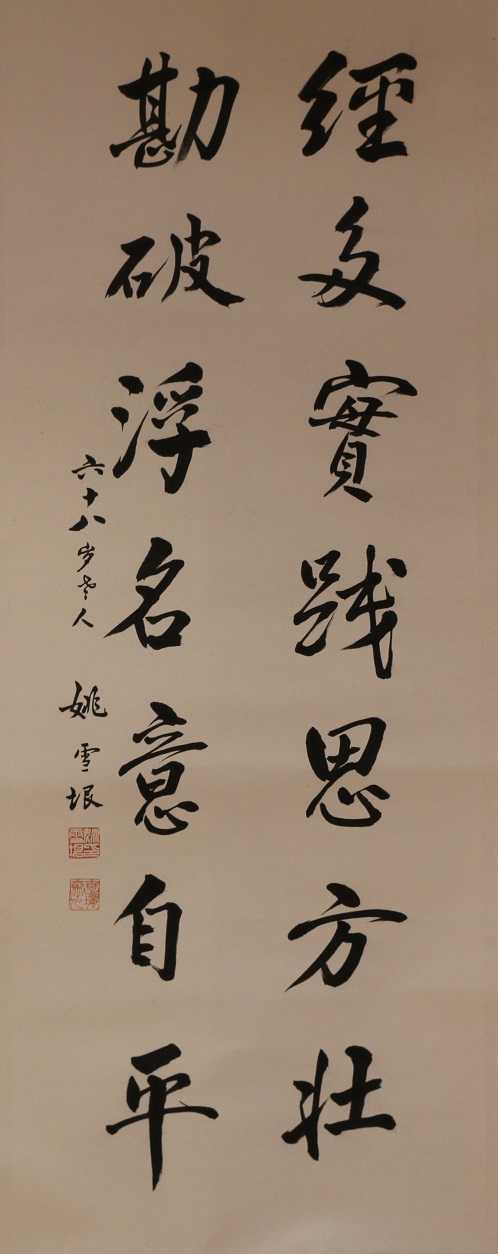 經多實践思方壮
勘破浮名意自平
六十八岁老人
姚雪垠